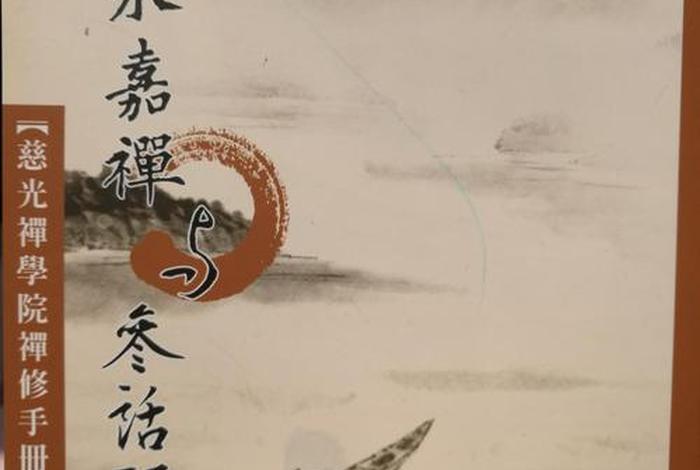 永嘉禪与參話
【慈光禪學院禪修手冊